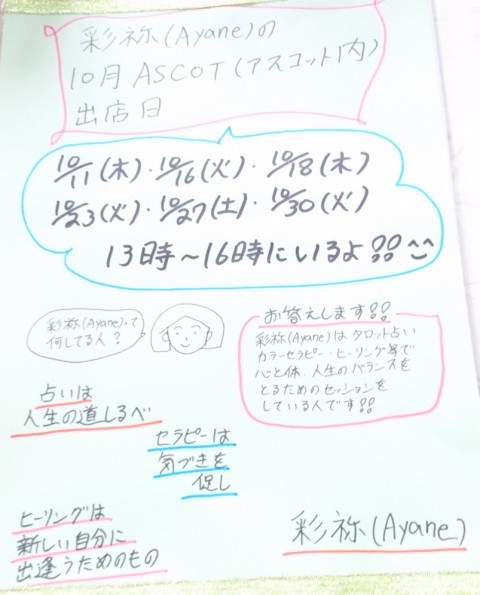 彩祢(Ayane)の
10月ASCOT(アスコット内)
出店日
10/11(木)・10/16(火)・10/18(木)
10/23(火)・10/27(土)・10/30(火)
13時〜16時にいるよ!!^^
彩祢(Ayane)って
何してる人?
お答えします!!
彩祢(Ayane)はタロット占い
カラーセラピー・ヒーリング等で
心と体、人生のバランスを
とるためのセッションを
している人です!!
占いは
人生の道しるべ
セラピーは
気づきを
促し
ヒーリングは
新しい自分に
出逢うためのもの
彩祢(Ayane)